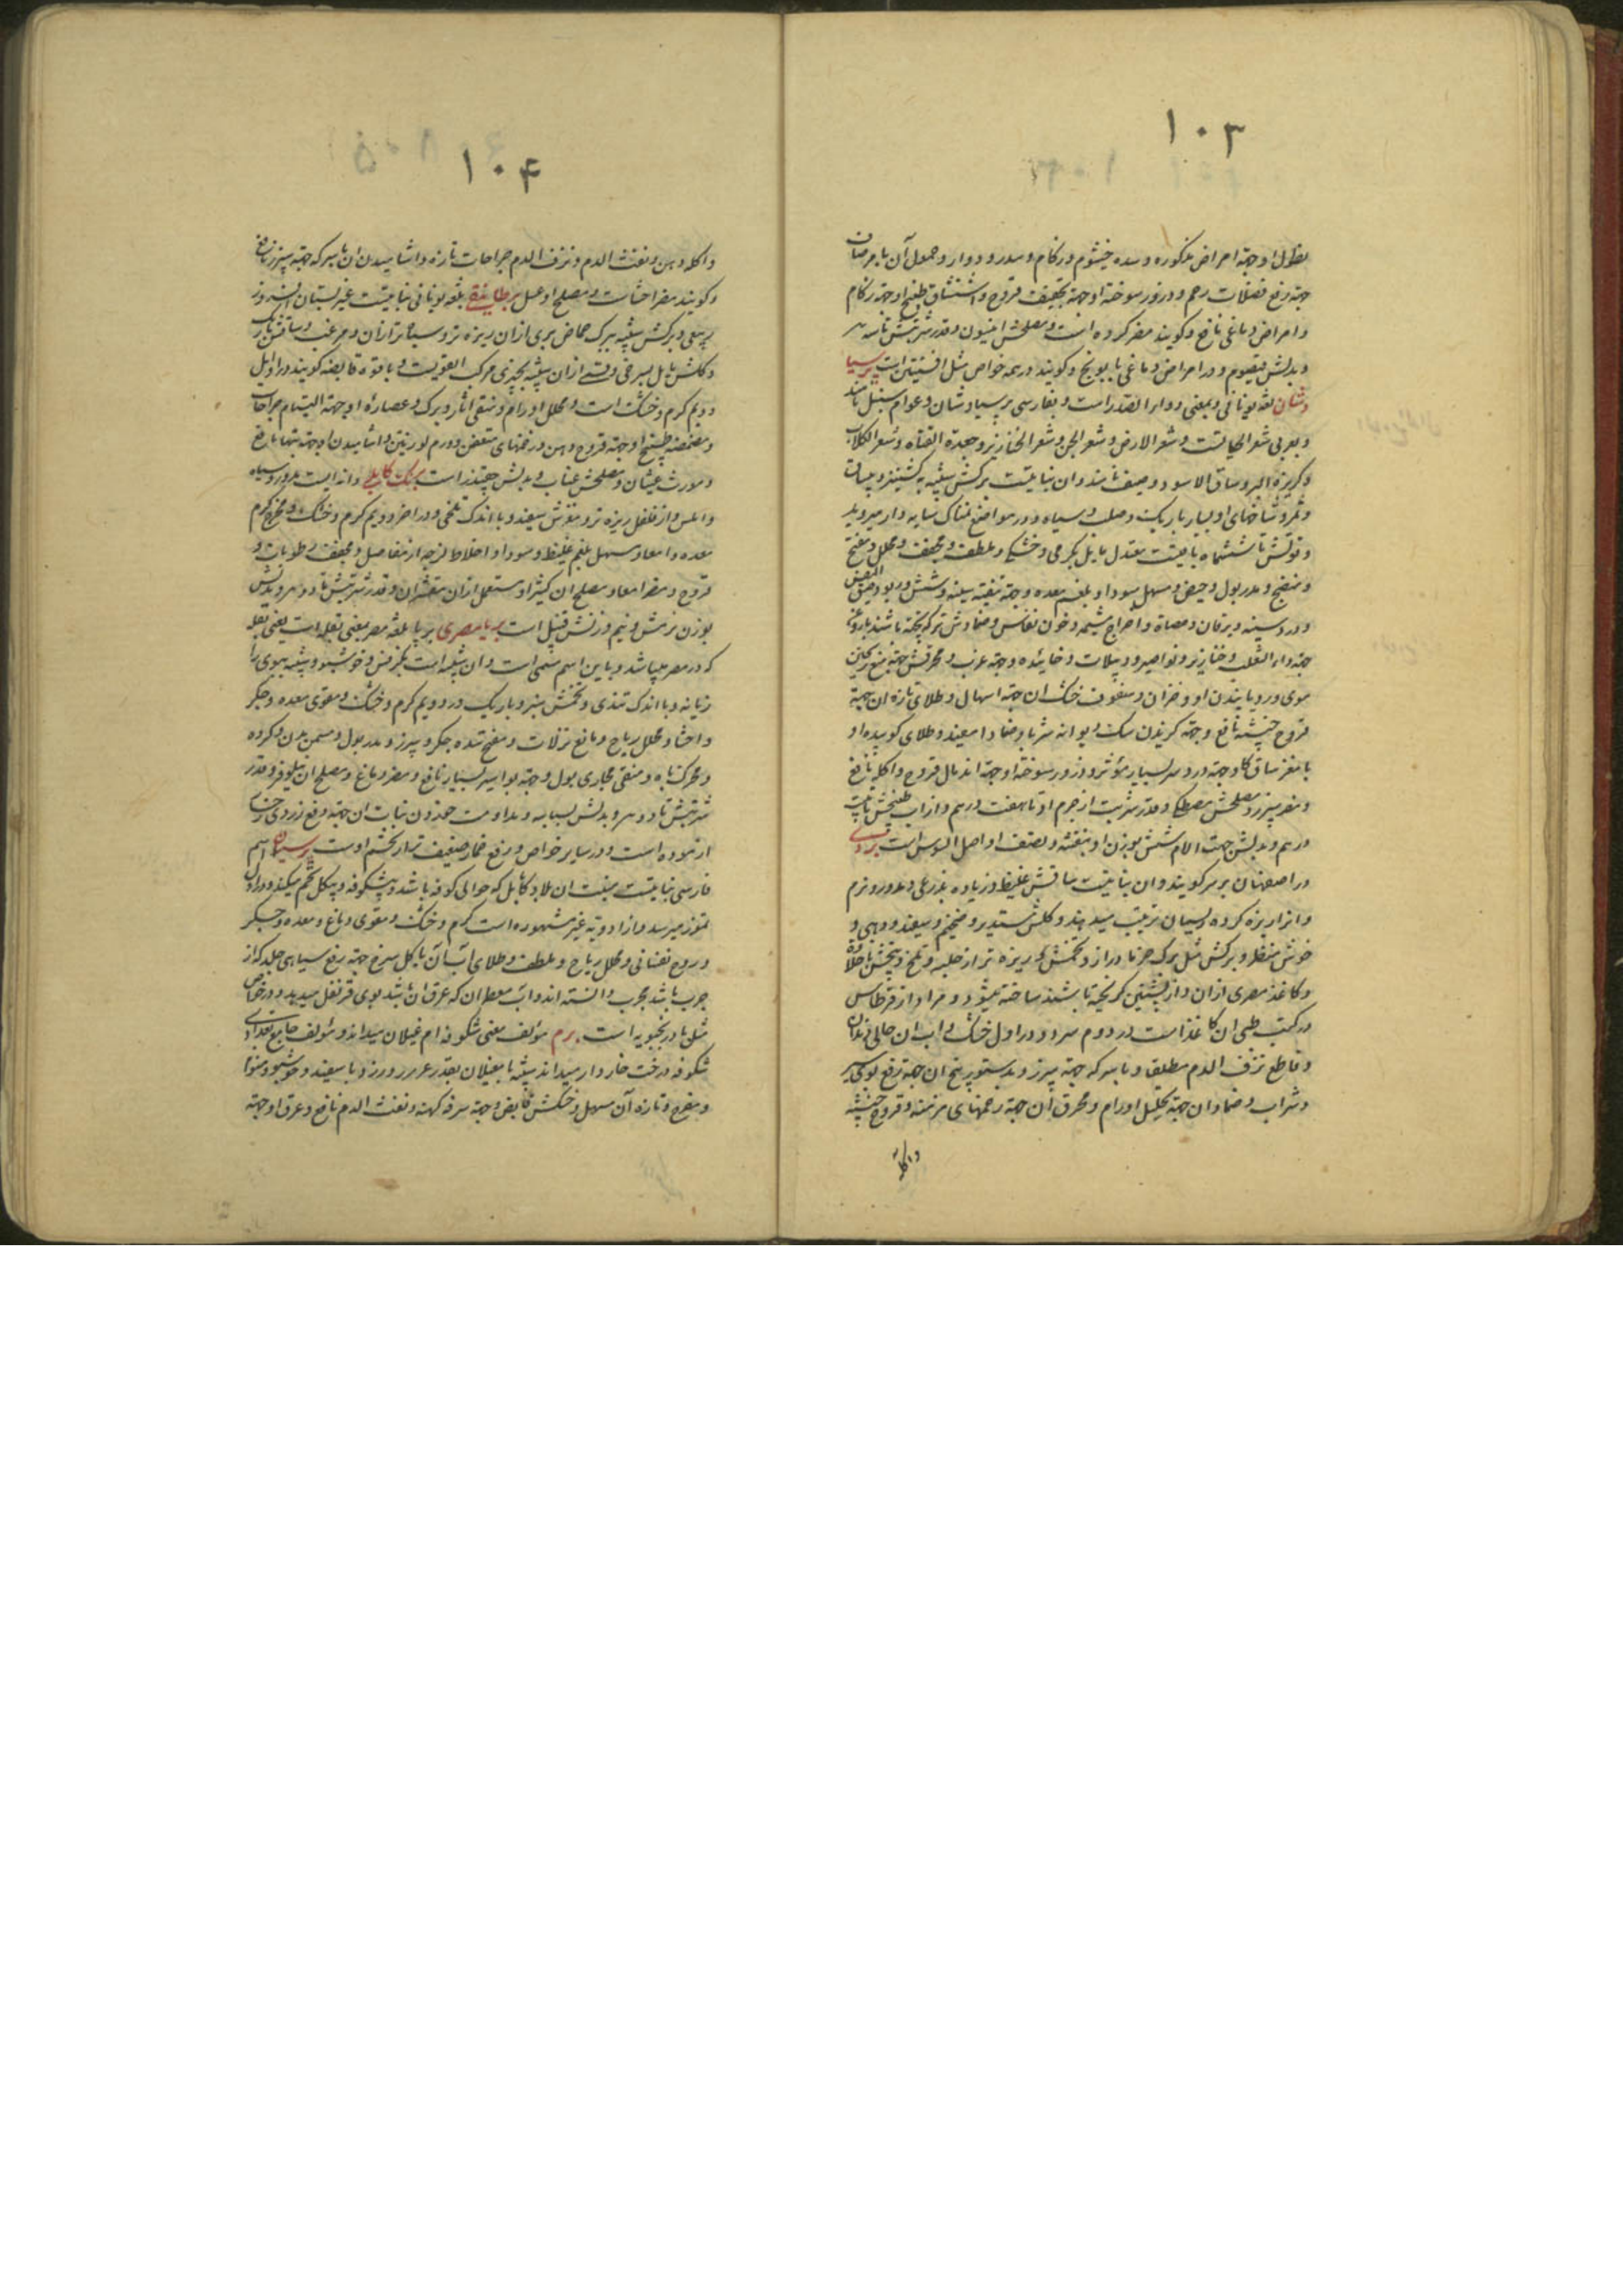 ۱۰۳
بطول او جهة امراض مذکوره و سده خیشوم و زکام و سدر و دوار و حمول آن با
جهة رفع فضلات رحم و ذرور سوخته او جهة تجفیف قروح و استنشاق طبیخ او جهة زکام
و امراض دماغی نافع و گویند مضر گرده است و مصلحش انیسون و قدر شربتش تا سه
و بدلش قیصوم و در امراض دماغی بابونج و گویند در همه خواص مثل افسنتین است پرسیا
وشان لغة یونانی و بمعنی دواء الصدر است و بفارسی پرسیاوشان و عوام سنبل نامند
و بعربی شعر الجبال و شعر الارض و شعر الجن و شعر الخنازیر و جعدة القناة و شعر الکلاب
و کزبرة البیر و ساق الاسود و وصیف نامند و ان نباتیست برکش شبیه به کشنیز و بی ساق
و ثمر و شاخهای او بسیار باریک و صلب و سیاه و در مواضع نمناک سایه دار میروید
و قوتش تا ششماه باقیست معتدل مایل بگرمی و خشکی و ملطف و مجفف و محلل و مفتح
و منضج و مدر بول و حیض و مسهل سودا و بلغم معده و جهة تنقیه سینه و شش و ربو و ضیق النفس
و درد سینه و یرقان و حصاة و اخراج مشیمه و خون نفاس و ضمادش که پخته باشند با روغن
جهة داء الثعلب و خنازیر و نواصیر و دبیلات و خاییده و جهة عرب و محرقش جهة منع ریختن
موی و رویانیدن او و حزاز و سفوف خشک ان جهة اسهال و طلای تازه ان جهة
قروح خبیثه نافع و جهة گزیدن سگ دیوانه شربا و ضمادا مفید و طلای کوبیده او
با مغز ساق گاو جهة درد سر بسیار مؤثر و ذرور سوخته او جهة اندمال قروح و اکله نافع
و مضر سپرز و مصلحش مصطکی و قدر شربت از جرم او تا هفت درهم و از آب طبیخش تا بیست
درهم و بدلش جهت آلام شش بوزن او بنفشه و نصف او اصل السوس است بردی
در اصفهان بربر گویند و ان نباتیست ساقش غلیظ و زیاده بذرعی و مدور و نرم
و انرا ریزه کرده ریسمان ترتیب میدهند و گلش مستدیر و ضخیم و سفید و
خوش منظر و برکش مثل برک خرما دراز و تخمش ریزه تر از حلبه و تلخ و بیخش با حلاوة
و کاغذ مصری ازان و از پشتین که پخته باشند ساخته میشود و مراد از قرطاس
در کتب طبی ان کاغذ است در دوم سرد و در اول خشک و آب ان
و قاطع نزف الدم مطلقا و با سرکه جهة سپرز و بدستور بیخ ان جهة رفع بوی سیر
و شراب و ضماد ان جهة تحلیل اورام و محرق ان جهة زخمهای مزمنه و قروح خبیثه
و اکله
۱۰۴
و اکله دهن و نفث الدم و نزف الدم جراحات تازه و اشامیدن ان با سرکه جهة سپرز نافع
و گویند مضر احشاست و مصلح او عسل برطانیقی بلغه یونانی نباتیست غیر بستان افروز
ربیعی و برکش شبیه ببرک حماض بری ازان ریزه تر و سیاه تر ازان و مزغب و ساقش باریک
و گلش مایل بسرخی و قسمی ازان شبیه بچیزی مرکب القوی است و با قوه قابضه گویند در اوایل
دویم گرم و خشک است و محلل اورام و منقی آثار و برک و عصاره او جهة التیام جراحات
و مضمضه طبیخ او جهة قروح دهن و زخمهای متعفن و ورم لوزتین و اشامیدن او جهة تبها نافع
و مورث غثیان و مصلحش عناب و بدلش چغندر است برنک کابلی دانه ایست مدور و سیاه
و املس و از فلفل ریزه تر و مغزش سفید و با اندک تلخی و در اخر دویم گرم و خشک و مخرج کرم
معده و امعا و مسهل بلغم غلیظ و سودا و اخلاط لزجه از مفاصل و مجفف رطوبات و
قروح و مضر امعا و مصلح ان کتیرا و مستعمل ازان مقشر ان و قدر شربتش تا دو درهم و بدلش
بوزن ترمس و نیم وزنش قنبیل است بریا مصری بریا بلغه مصر بمعنی بقله است یعنی بقله
که در مصر میباشد و باین اسم مسمی است و ان شبیه است بکرفس و خوشبو و شبیه ببوی
رازیانه و با اندک تندی و تخمش سبز و باریک در دویم گرم و خشک و مقوی معده و جگر
و احشا و محلل ریاح و مانع نزلات و مفتح سده جگر و سپرز و مدر بول و مسمن بدن و گرده
و محرک باه و منقی مجاری بول و جهة بواسیر بسیار نافع و مضر دماغ و مصلح ان نیلوفر و قدر
شربتش تا دو درهم و بدلش بسباسه و مداومت خوردن نبات ان جهة رفع زردی رخسار
ازموده است و در سایر خواص و رفع خمار ضعیف تر از تخم اوست برسیان اسم
فارسی نباتیست منبت ان بلاد کابل که حوالی کوفه باشد و بی شکوفه و بی گل تخم میکند و در اول
تموز میرسد و از ادویه غیر مشهوره است گرم و خشک و مقوی دماغ و معده و جگر
و روح نفسانی و محلل ریاح و ملطف و طلای آب آن با گل سرخ جهة رفع سیاهی جلد که از
جرب باشد مجرب دانسته اند و آب مقطر ان که عرق ان باشد بوی قرنفل میدهد و در خواص
مثل بادرنجبویه است برم مؤلف مغنی شکوفه ام غیلان میداند و مؤلف جامع بغدادی
شکوفه درخت خاردار میداند شبیه بامغیلان بقدر عرعر و زرد یا سفید و خوشبو و
و مفرح و تازه آن مسهل و خشکش قابض و جهة سرفه کهنه و نفث الدم نافع و عرق او جهة